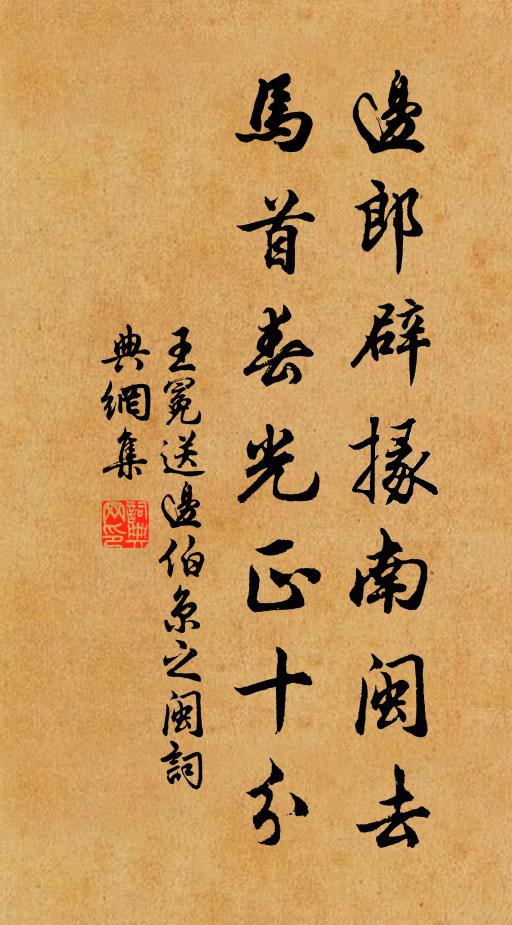 邊郎辟掾南閩去
馬首春光正十分
王冕送邊伯京之閩詞
典網集
詞典網印